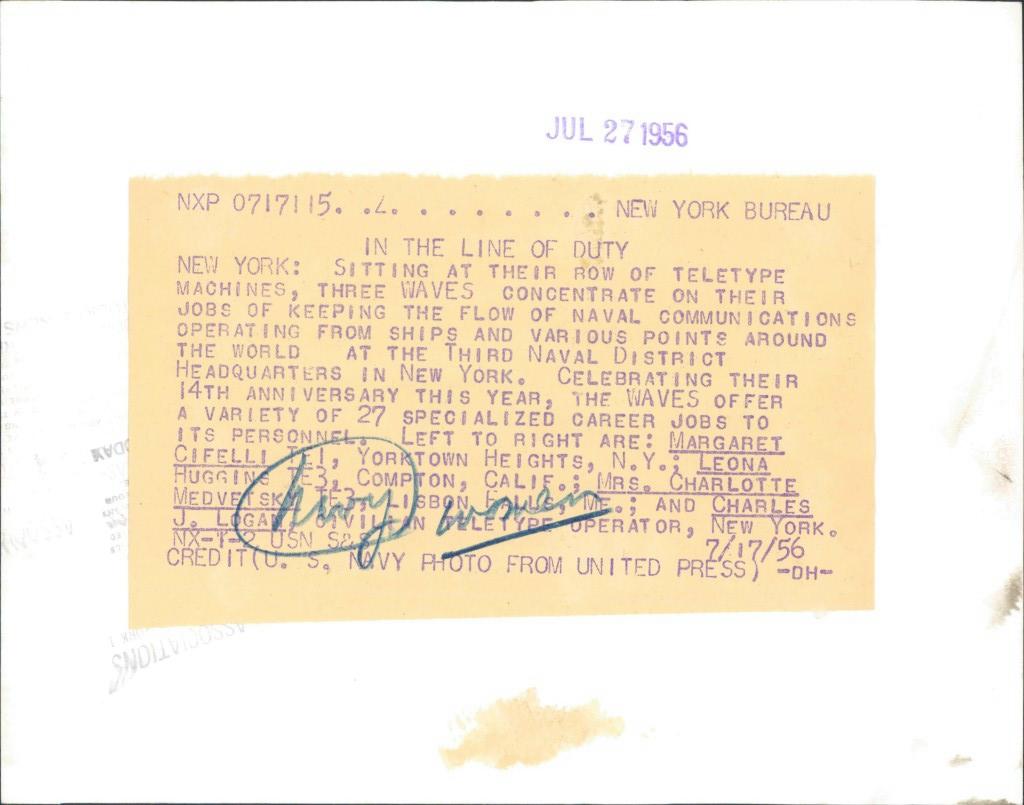 JUL 27 1956
NXP 0717115. .L. . . . . . . . . . NEW YORK BUREAU
IN THE LINE OF DUTY
NEW YORK: SITTING AT THEIR ROW OF TELETYPE
MACHINES, THREE WAVES CONCENTRATE ON THEIR
JOBS OF KEEPING THE FLOW OF NAVAL COMMUNICATIONS
OPERATING FROM SHIPS AND VARIOUS POINTS AROUND
THE WORLD AT THE THIRD NAVAL DISTRICT
HEADQUARTERS IN NEW YORK. CELEBRATING THEIR
14TH ANNIVERSARY THIS YEAR, THE WAVES OFFER
A VARIETY OF 27 SPECIALIZED CAREER JOBS TO
ITS PERSONNEL. LEFT TO RIGHT ARE: MARGARET
CIFELLI TE1, YORKTOWN HEIGHTS, N.Y.; LEONA
HUGGINS TE3, COMPTON, CALIF.; MRS. CHARLOTTE
MEDVETSKY TE3, LISBON FALLS, ME.; AND CHARLES
J. LOGAN, CIVILIAN TELETYPE OPERATOR, NEW YORK.
Navy women
USN S&S 7/17/56
CREDIT (U. S. NAVY PHOTO FROM UNITED PRESS) -DH-
ASSOCIATIONS